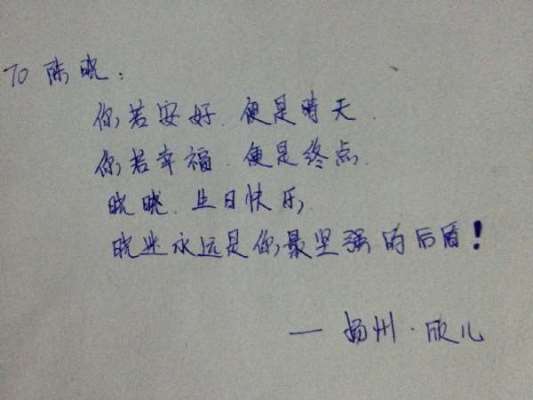 TO 陈晓：
你若安好．便是晴天．
你若幸福．便是终点．
晓晓．生日快乐．
晓业永远是你最坚强的后盾！
— 扬州·欣儿